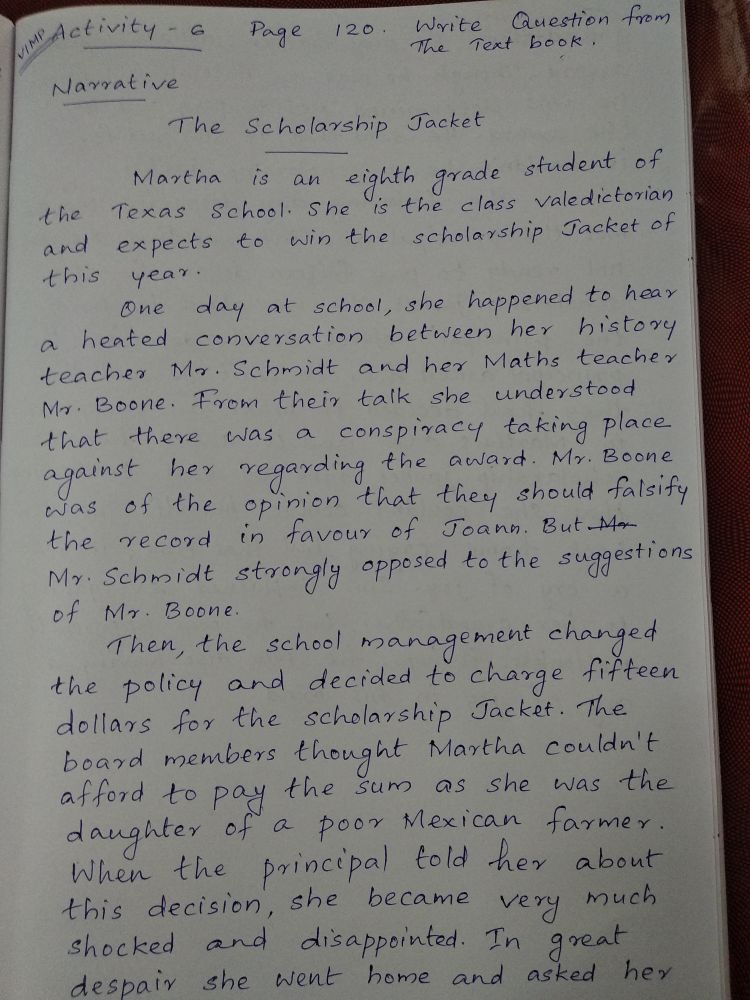 VIMP
Activity - 6 Page 120. Write Question from
The Text book.
Narrative
The Scholarship Jacket
Martha is an eighth grade student of
the Texas School. She is the class valedictorian
and expects to win the scholarship Jacket of
this year.
One day at school, she happened to hear
a heated conversation between her history
teacher Mr. Schmidt and her Maths teacher
Mr. Boone. From their talk she understood
that there was a conspiracy taking place
against her regarding the award. Mr. Boone
was of the opinion that they should falsify
the record in favour of Joann. But Mr
Mr. Schmidt strongly opposed to the suggestions
of Mr. Boone.
Then, the school management changed
the policy and decided to charge fifteen
dollars for the scholarship Jacket. The
board members thought Martha couldn't
afford to pay the sum as she was the
daughter of a poor Mexican farmer.
When the principal told her about
this decision, she became very much
shocked and disappointed. In great
despair she went home and asked her